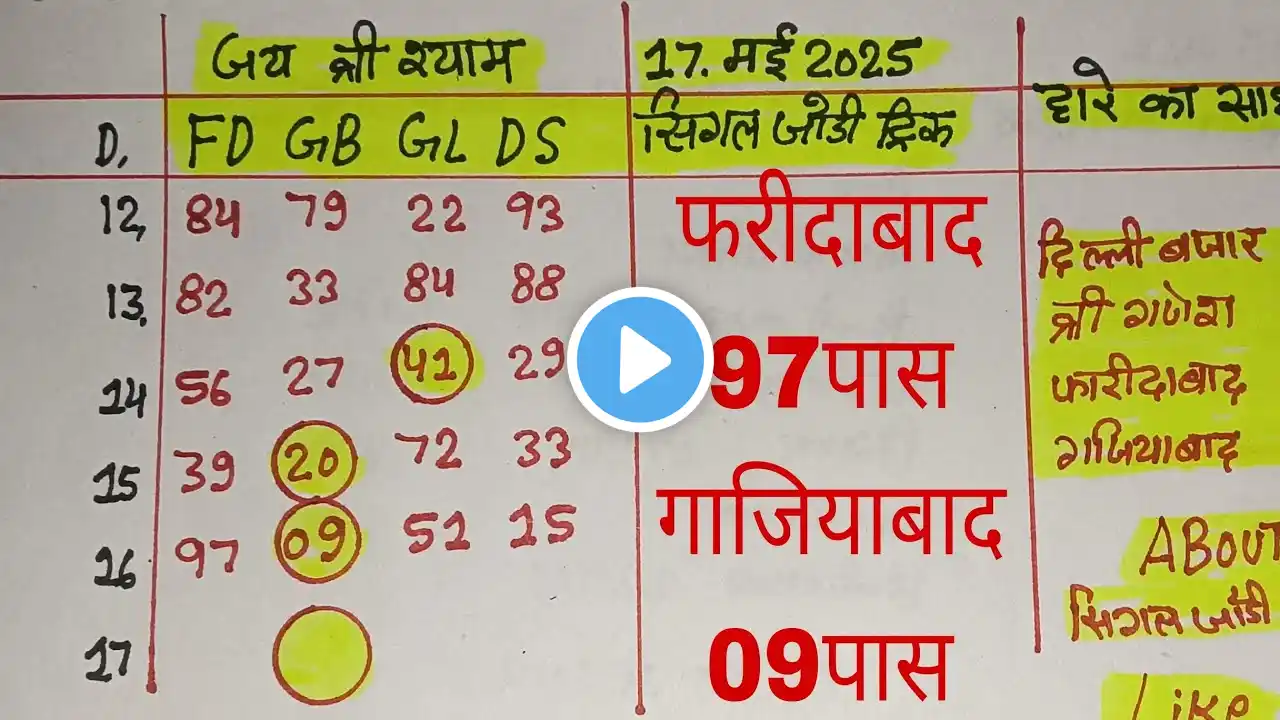 जय श्री श्याम
17. मई 2025
हारे का
D. FD GB GL DS
सिगल जोडी ट्रिक
12, 84 79 22 93
13. 82 33 84 88
14 56 27 41 29
15 39 20 72 33
16 97 09 51 15
17
फरीदाबाद
97पास
गाजियाबाद
09पास
दिल्ली बजार
श्री गणेश
फारीदाबाद
गजियाबाद
ABOUT
सिगल जोडी
Like